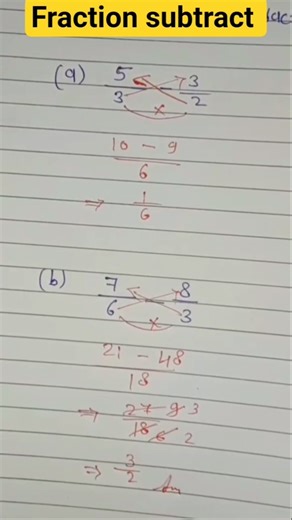 Fraction subtract
(a) 5/3 - 3/2
10 - 9
6
⇒ 1/6
(b) 7/6 - 8/3
21 - 48
18
⇒ 27 9 3
18 6 2
⇒ 3/2 Ans